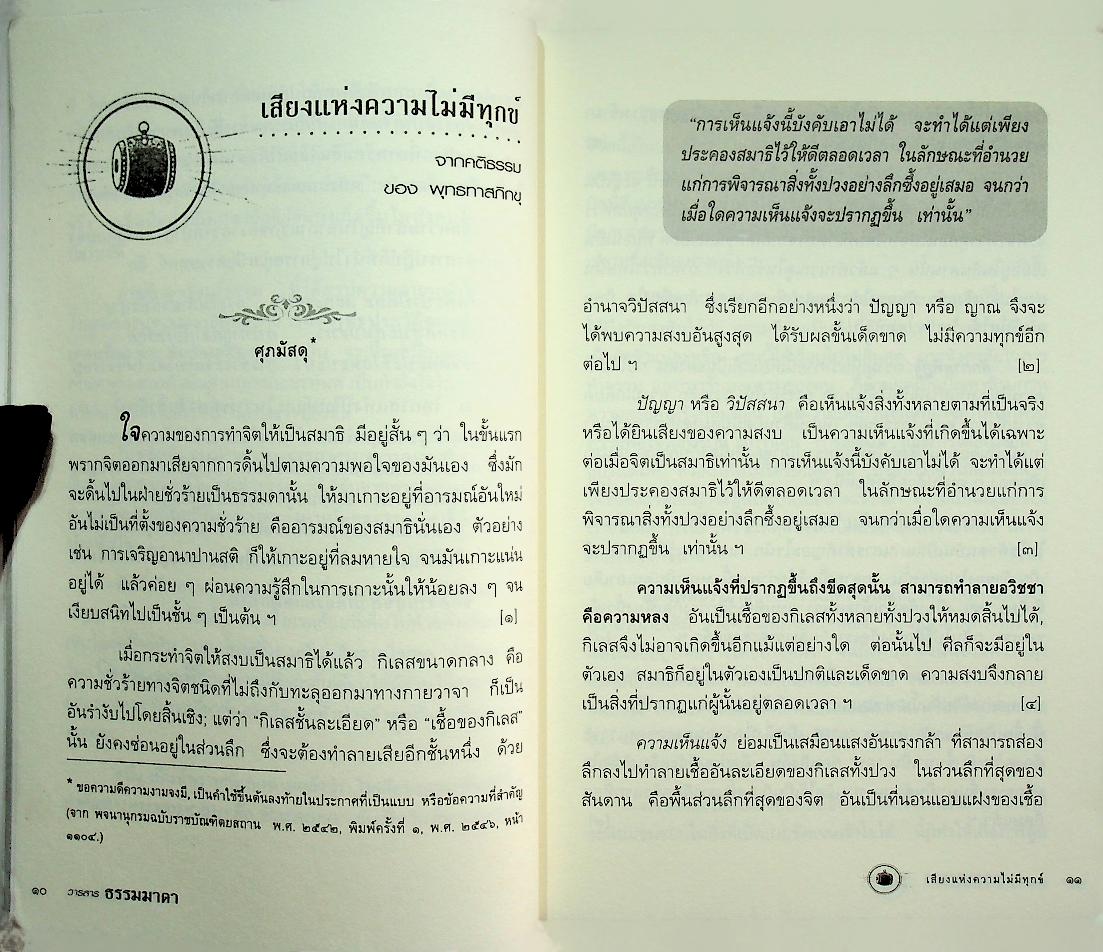 เสียงแห่งความไม่มีทุกข์
จากคติธรรม
ของ พุทธทาสภิกขุ
ศุภมัสดุ*
ใจความของการทำจิตให้เป็นสมาธิ มีอยู่สั้น ๆ ว่า ในขั้นแรก
พรากจิตออกมาเสียจากการดิ้นไปตามความพอใจของมันเอง ซึ่งมัก
จะดิ้นไปในฝ่ายชั่วร้ายเป็นธรรมดานั้น ให้มาเกาะอยู่ที่อารมณ์อันใหม่
อันไม่เป็นที่ตั้งของความชั่วร้าย คืออารมณ์ของสมาธินั่นเอง ตัวอย่าง
เช่น การเจริญอานาปานสติ ก็ให้เกาะอยู่ที่ลมหายใจ จนมันเกาะแน่น
อยู่ได้ แล้วค่อย ๆ ผ่อนความรู้สึกในการเกาะนั้นให้น้อยลง ๆ จน
เงียบสนิทไปเป็นชั้น ๆ เป็นต้น ฯ [๑]
เมื่อกระทำจิตให้สงบเป็นสมาธิได้แล้ว กิเลสขนาดกลาง คือ
ความชั่วร้ายทางจิตชนิดที่ไม่ถึงกับทะลุออกมาทางกายวาจา ก็เป็น
อันรำงับไปโดยสิ้นเชิง; แต่ว่า "กิเลสชั้นละเอียด" หรือ "เชื้อของกิเลส"
นั้น ยังคงซ่อนอยู่ในส่วนลึก ซึ่งจะต้องทำลายเสียอีกชั้นหนึ่ง ด้วย
* ขอความดีความงามจงมี, เป็นคำใช้ขึ้นต้นลงท้ายในประกาศที่เป็นแบบ หรือข้อความที่สำคัญ
(จาก พจนานุกรมฉบับราชบัณฑิตยสถาน พ.ศ. ๒๕๔๒, พิมพ์ครั้งที่ ๑, พ.ศ. ๒๕๔๖, หน้า
๑๑๐๔.)
๑๐ วารสาร ธรรมมาตา
"การเห็นแจ้งนี้บังคับเอาไม่ได้ จะทำได้แต่เพียง
ประคองสมาธิไว้ให้ดีตลอดเวลา ในลักษณะที่อำนวย
แก่การพิจารณาสิ่งทั้งปวงอย่างลึกซึ้งอยู่เสมอ จนกว่า
เมื่อใดความเห็นแจ้งจะปรากฏขึ้น เท่านั้น"
อำนาจวิปัสสนา ซึ่งเรียกอีกอย่างหนึ่งว่า ปัญญา หรือ ญาณ จึงจะ
ได้พบความสงบอันสูงสุด ได้รับผลขั้นเด็ดขาด ไม่มีความทุกข์อีก
ต่อไป ฯ [๒]
ปัญญา หรือ วิปัสสนา คือเห็นแจ้งสิ่งทั้งหลายตามที่เป็นจริง
หรือได้ยินเสียงของความสงบ เป็นความเห็นแจ้งที่เกิดขึ้นได้เฉพาะ
ต่อเมื่อจิตเป็นสมาธิเท่านั้น การเห็นแจ้งนี้บังคับเอาไม่ได้ จะทำได้แต่
เพียงประคองสมาธิไว้ให้ดีตลอดเวลา ในลักษณะที่อำนวยแก่การ
พิจารณาสิ่งทั้งปวงอย่างลึกซึ้งอยู่เสมอ จนกว่าเมื่อใดความเห็นแจ้ง
จะปรากฏขึ้น เท่านั้น ฯ [๓]
ความเห็นแจ้งที่ปรากฏขึ้นถึงขีดสุดนั้น สามารถทำลายอวิชชา
คือความหลง อันเป็นเชื้อของกิเลสทั้งหลายทั้งปวงให้หมดสิ้นไปได้,
กิเลสจึงไม่อาจเกิดขึ้นอีกแม้แต่อย่างใด ต่อนั้นไป ศีลก็จะมีอยู่ใน
ตัวเอง สมาธิก็อยู่ในตัวเองเป็นปกติและเด็ดขาด ความสงบจึงกลาย
เป็นสิ่งที่ปรากฏแก่ผู้นั้นอยู่ตลอดเวลา ฯ [๔]
ความเห็นแจ้ง ย่อมเป็นเสมือนแสงอันแรงกล้า ที่สามารถส่อง
ลึกลงไปทำลายเชื้ออันละเอียดของกิเลสทั้งปวง ในส่วนลึกที่สุดของ
สันดาน คือพื้นส่วนลึกที่สุดของจิต อันเป็นที่นอนแอบแฝงของเชื้อ
เสียงแห่งความไม่มีทุกข์ ๑๑